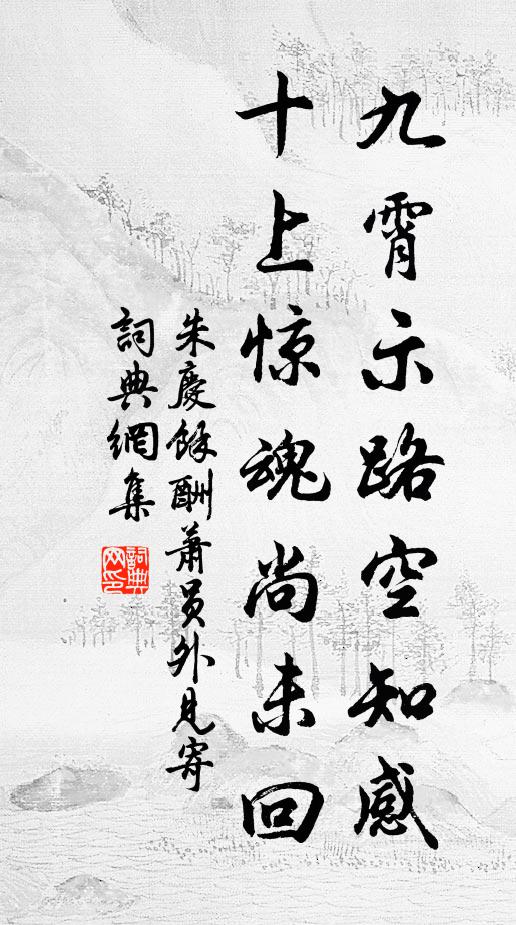 九霄示路空知感
十上惊魂尚未回
朱慶餘酬蕭員外見寄
詞典網集
詞典
网印